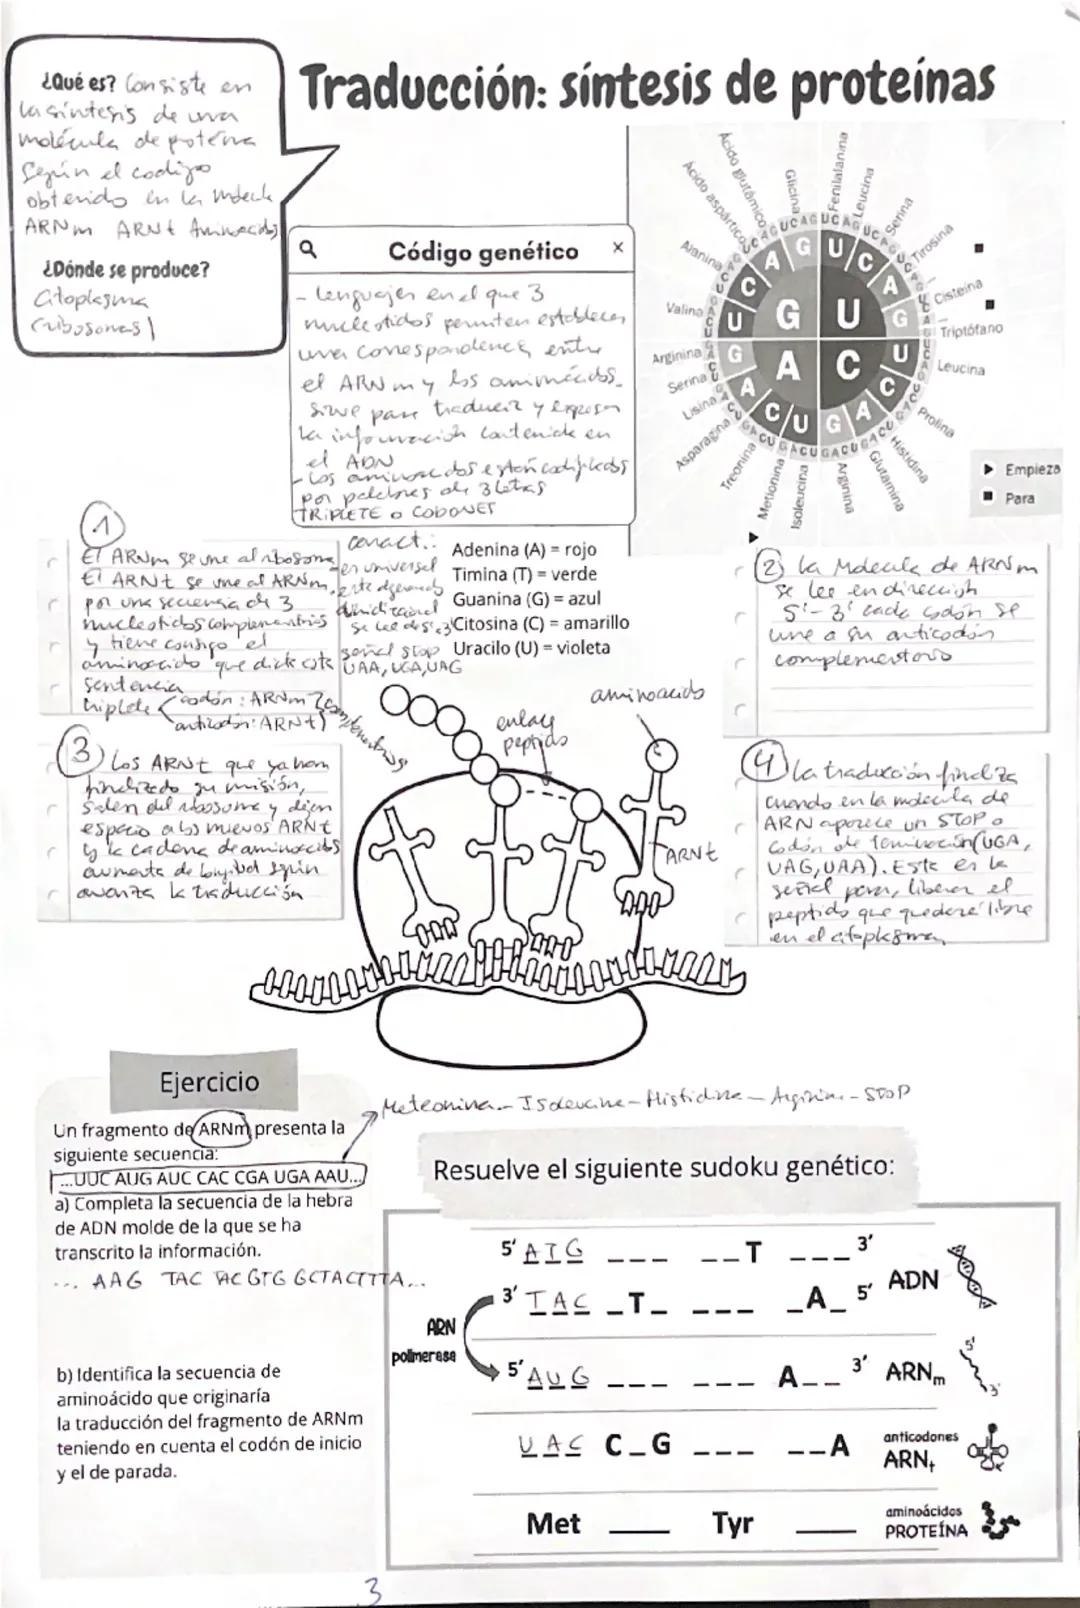 ¿Qué es? Consiste en
la síntesis de una
molécula de proteína
según el codigo
obtenido en la molecula
ARNm ARNt Aminoacidos
¿Dónde se produce?
Citoplasma
(ribosomas)
Traducción: síntesis de proteínas
Código genético
- Lenguajes en el que 3
nucleotidos permiten establecer
una correspondencia entre
el ARNm y los aminoácidos.
Sirve para traducir y expresar
la información contenida en
el ADN
- Los aminoacidos están codificados
por palabras de 3 letras
TRIPLETE O CODONES
Ácido aspártico
Ácido glutámico
Glicina
Fenilalanina
Leucina
Serina
Tirosina
Cisteina
Triptófano
Leucina
Prolina
Histidina
Glutamina
Arginina
Isoleucina
Metionina
Treonina
Asparagina
Lisina
Serina
Arginina
Valina
Alanina
G U
A C
Empieza
Para
1
El ARNm se une al ribosoma
El ARNt se une al ARNm
por una secuencia de 3
nucleotidos complementarios
y tiene consigo el
aminoacido que dicta esta
sentencia
triplete codón: ARNm
anticodón: ARNt
complementarios
caract.:
es universal
este degenerado
unidireccional
se lee de 5' a 3'
señal stop
UAA, UGA, UAG
Adenina (A) = rojo
Timina (T) = verde
Guanina (G) = azul
Citosina (C) = amarillo
Uracilo (U) = violeta
2 La Molecula de ARNm
se lee en dirección
5'-3' cada codón se
une a su anticodón
complementario
3 Los ARNt que ya han
finalizado su misión,
salen del ribosoma y dejan
espacio a los nuevos ARNt
y la cadena de aminoacidos
aumenta de longitud según
avanza la traducción
aminoacido
enlace
peptidos
ARNt
4 La traducción finaliza
cuando en la molecula de
ARN aparece un STOP o
codón de terminación (UGA,
UAG, UAA). Esta es la
señal para liberar el
peptido que quedará libre
en el citoplasma
Ejercicio
Un fragmento de ARNm presenta la
siguiente secuencia:
...UUC AUG AUC CAC CGA UGA AAU...
a) Completa la secuencia de la hebra
de ADN molde de la que se ha
transcrito la información.
... AAG TAC TAC GTG GCTACTTTA...
b) Identifica la secuencia de
aminoácido que originaría
la traducción del fragmento de ARNm
teniendo en cuenta el codón de inicio
y el de parada.
Meteonina - Isoleucine - Histidina - Arginina - STOP
Resuelve el siguiente sudoku genético:
5' ATG ___ __T ___ 3'
3' TAC _T_ ___ _A_ 5' ADN
ARN
polimerasa
5' AUG ___ ___ A__ 3' ARNm
5'
3'
UAC C_G ___ __A anticodones
ARNt
Met ___ Tyr ___ aminoácidos
PROTEÍNA
3